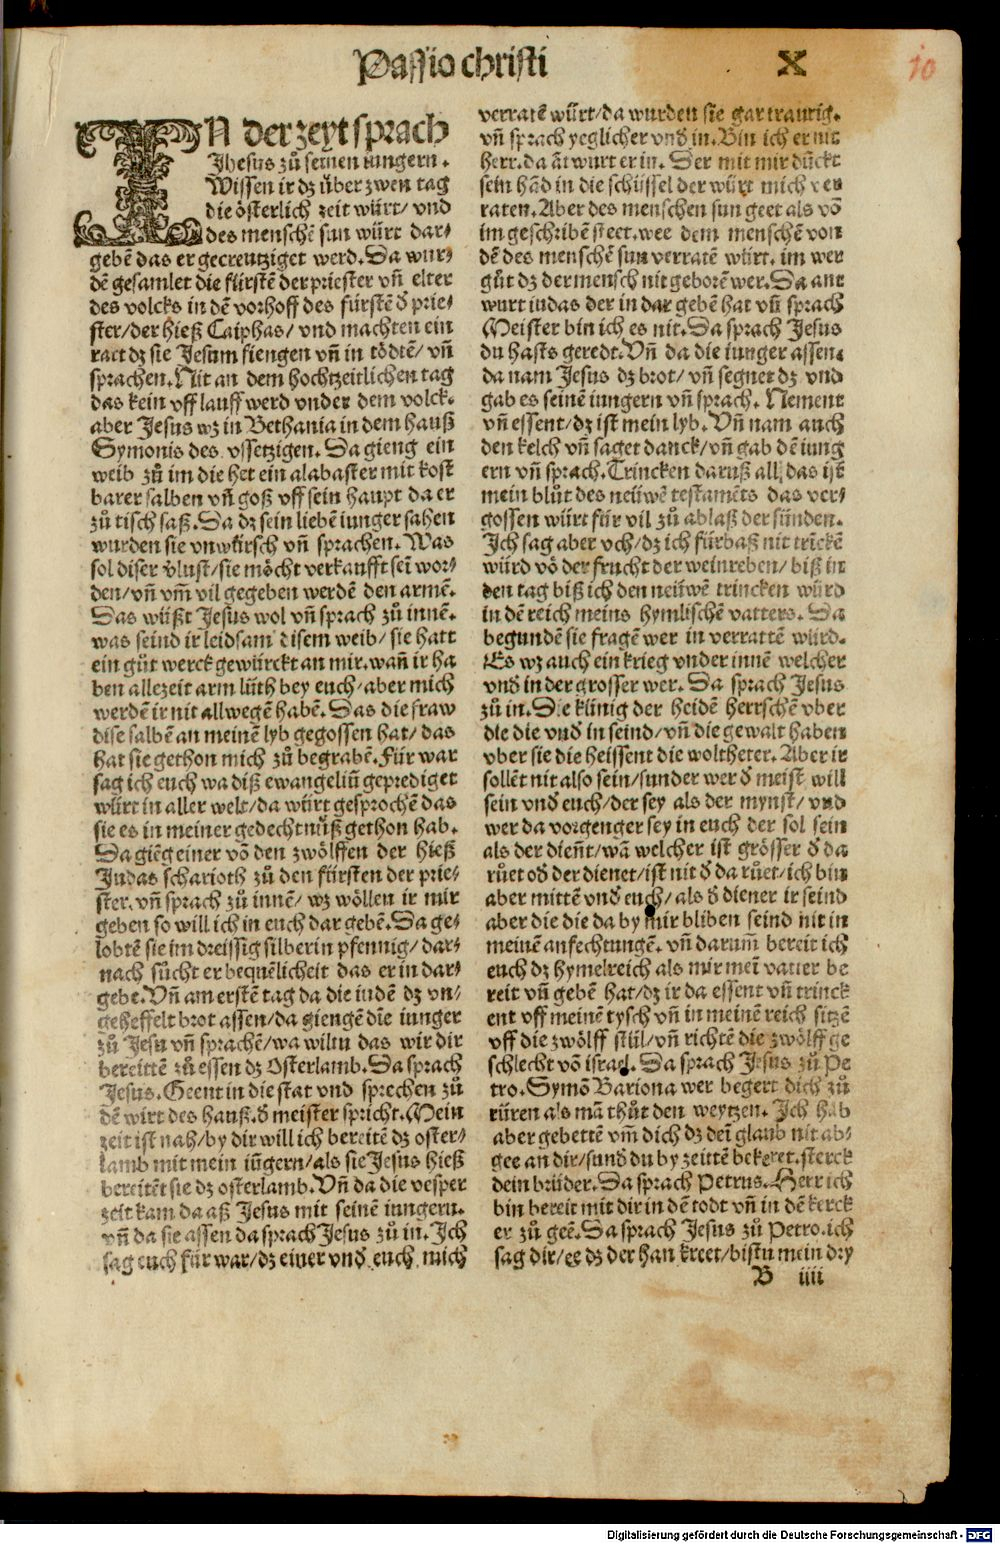 Passio christi
X
10
IN der zeyt sprach
Jhesus zů seinen iungern.
Wissen ir dz über zwen tag
die österlich zeit würt/ vnd
des menschē sun würt dar⸗
gebē das er gecreutziget werd. Da wur⸗
dē gesamlet die fürstē der priester vñ elter
des volcks in dē vorhoff des fürstē d̕ prie⸗
ster/der hieß Caiphas/ vnd machten ein
ract dz sie Jesum fiengen vñ in tödtē/ vñ
sprachen. Nit an dem hochtzeitlichen tag
das kein vfflauff werd vnder dem volck.
aber Jesus wz in Bethania in dem hauß
Symonis des vssetzigen. Da gieng ein
weib zů im die het ein alabaster mit kost
barer salben vñ goß vff sein haupt da er
zů tisch saß. Da dz sein liebē iunger sahen
wurden sie vnwürsch vñ sprachen. Was
sol diser v̕lust/sie möcht verkaufft seī wor⸗
den/vñ vm̄ vil gegeben werdē den armē.
Das wüßt Jesus wol vñ sprach zů innē.
was seind ir leidsam disem weib/ sie hatt
ein gůt werck gewürckt an mir. wañ ir ha
ben allezeit arm lüth bey euch/aber mich
werdē ir nit allwegē habē. Das die fraw
dise salbē an meinē lyb gegossen hat/ das
hat sie gethon mich zů begrabē. Für war
sag ich euch wa diß ewangeliū geprediget
würt in aller welt/da würt gesprochē das
sie es in meiner gedechtnüß gethon hab.
Da giēg einer vō den zwölffen der hieß
Judas scharioth zů den fürsten der prie⸗
ster. vñ sprach zů innē/ wz wöllen ir mir
geben so will ich in euch dar gebē. Da ge⸗
lobtē sie im dreissig silberin pfennig/ dar⸗
nach sůcht er bequēlicheit das er in dar⸗
gebe. Vñ am erstē tag da die iudē dz vn⸗
geheffelt brot assen/da giengē die iunger
zů Jesu vñ sprachē/wa wiltu das wir dir
bereittē zů essen dz Osterlamb. Da sprach
Jesus. Geent in die stat vnd sprechen zů
dē wirt des hauß. d̕ meister spricht. Mein
zeit ist nah/by dir will ich bereitē dz oster⸗
lamb mit mein iūgern/als sie Jesus hieß
bereitēt sie dz osterlamb. Vñ da die vesper
zeit kam da aß Jesus mit seinē iungern.
vñ da sie assen da sprach Jesus zů in. Ich
sag euch für war/dz einer vnd̕ euch mich
verratē würt/da wurden sie gar traurig.
vñ sprach yeglicher vnd̕ in. Bin ich er nit
herr. da ātwurt er in. Der mit mir dūckt
sein hād in die schüssel der würt mich ver
raten. Aber des menschen sun geet als vō
im geschribē steet. wee dem menschē von
dē des menschē sun verratē würt. im wer
gůt dz der mensch nit geborē wer. Da ant
wurt iudas der in dar gebē hat vñ sprach
Meister bin ich es nit. Da sprach Jesus
du hasts geredt. Vñ da die iunger assen.
da nam Jesus dz brot/ vñ segnet dz vnd
gab es seinē iungern vñ sprach. Nement
vñ essent/dz ist mein lyb. Vñ nam auch
den kelch vñ saget danck/vñ gab dē iung
ern vñ sprach. Trincken daruß all, das ist
mein blůt des neüwē testamēts das ver⸗
gossen würt für vil zů ablaß der sünden.
Ich sag aber vch/dz ich fürbaß nit trīckē
würd vō der frucht der weinreben/ biß in
den tag biß ich den neüwē trincken würd
in dē reich meins hymlischē vatters. Da
begundē sie fragē wer in verrattē würd.
Es wz auch ein krieg vnder innē welcher
vnd̕ in der grosser wer. Da sprach Jesus
zů in. Die künig der heidē herrschē vber
die die vnd̕ in seind/ vñ die gewalt haben
vber sie die heissent die woltheter. Aber ir
sollēt nit also sein/sunder wer d̕ meist will
sein vnd̕ euch/der sey als der mynst/ vnd
wer da vorgenger sey in euch der sol sein
als der dieñt/wā welcher ist grösser d̕ da
růet od̕ der dienet/ist nit d̕ da růet/ich bin
aber mittē vnd̕ euch/als d̕ diener ir seind
aber die die da by mir bliben seind nit in
meinē anfechtungē. vñ darum̄ bereit ich
euch dz hymelreich als mir meī vatter be
reit vñ gebē hat/dz ir da essent vñ trinck
ent vff meinē tysch vñ in meinē reich sitzē
vff die zwölff stül/vñ richtē die zwölff ge
schlecht vō israel. Da sprach Jesus zů Pe
tro. Symō Bariona wer begert dich zů
rüren als mā thůt den weytzen. Ich hab
aber gebettē vm̄ dich dz deī glaub nit ab⸗
gee an dir/sund̕ du by zeittē bekeret. sterck
dein brüder. Da sprach Petrus. Herr ich
bin bereit mit dir in dē todt vñ in dē kerck
er zů geē. Da sprach Jesus zů Petro. ich
sag dir/ee dz der han kreet/bistu mein dry
B iiii
Digitalisierung gefördert durch die Deutsche Forschungsgemeinschaft - DFG